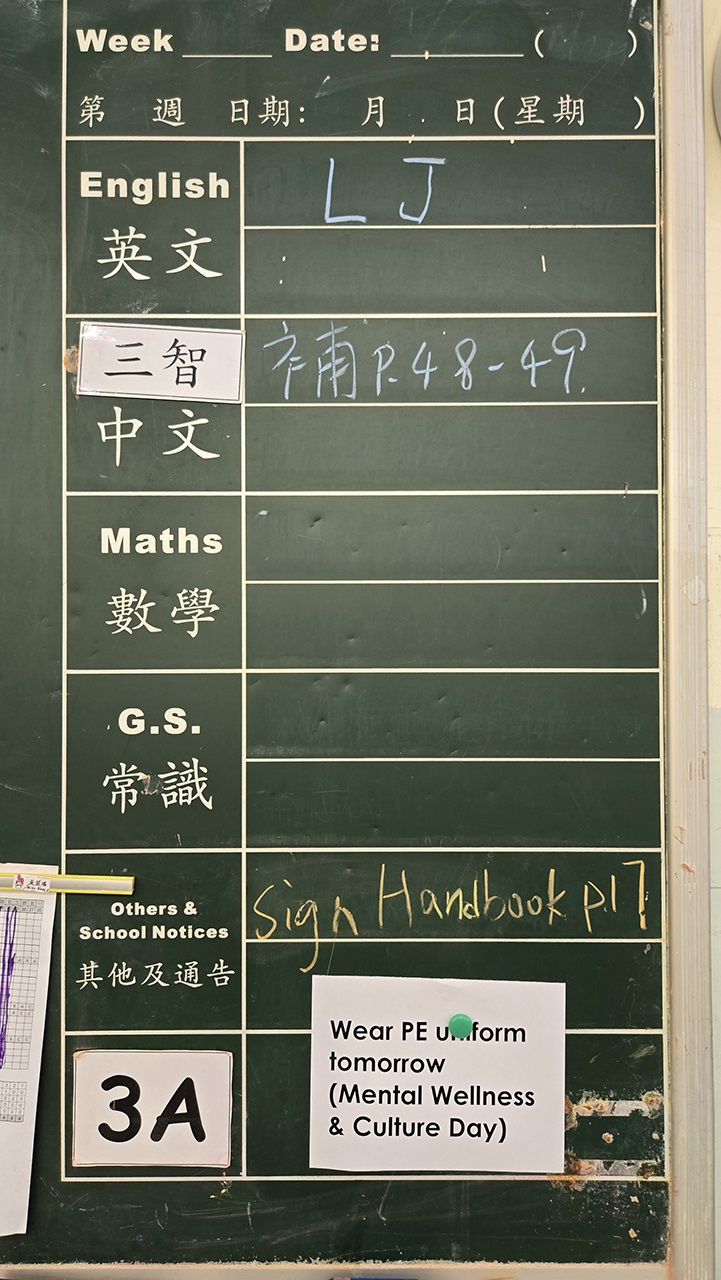 Week ____ Date: ______ ( )
第 週 日期: 月 日(星期 )
English
英文
L J
三智
補 P.48-49.
中文
Maths
數學
G.S.
常識
Others &
School Notices
其他及通告
Sign Handbook p17
3A
Wear PE uniform
tomorrow
(Mental Wellness
& Culture Day)